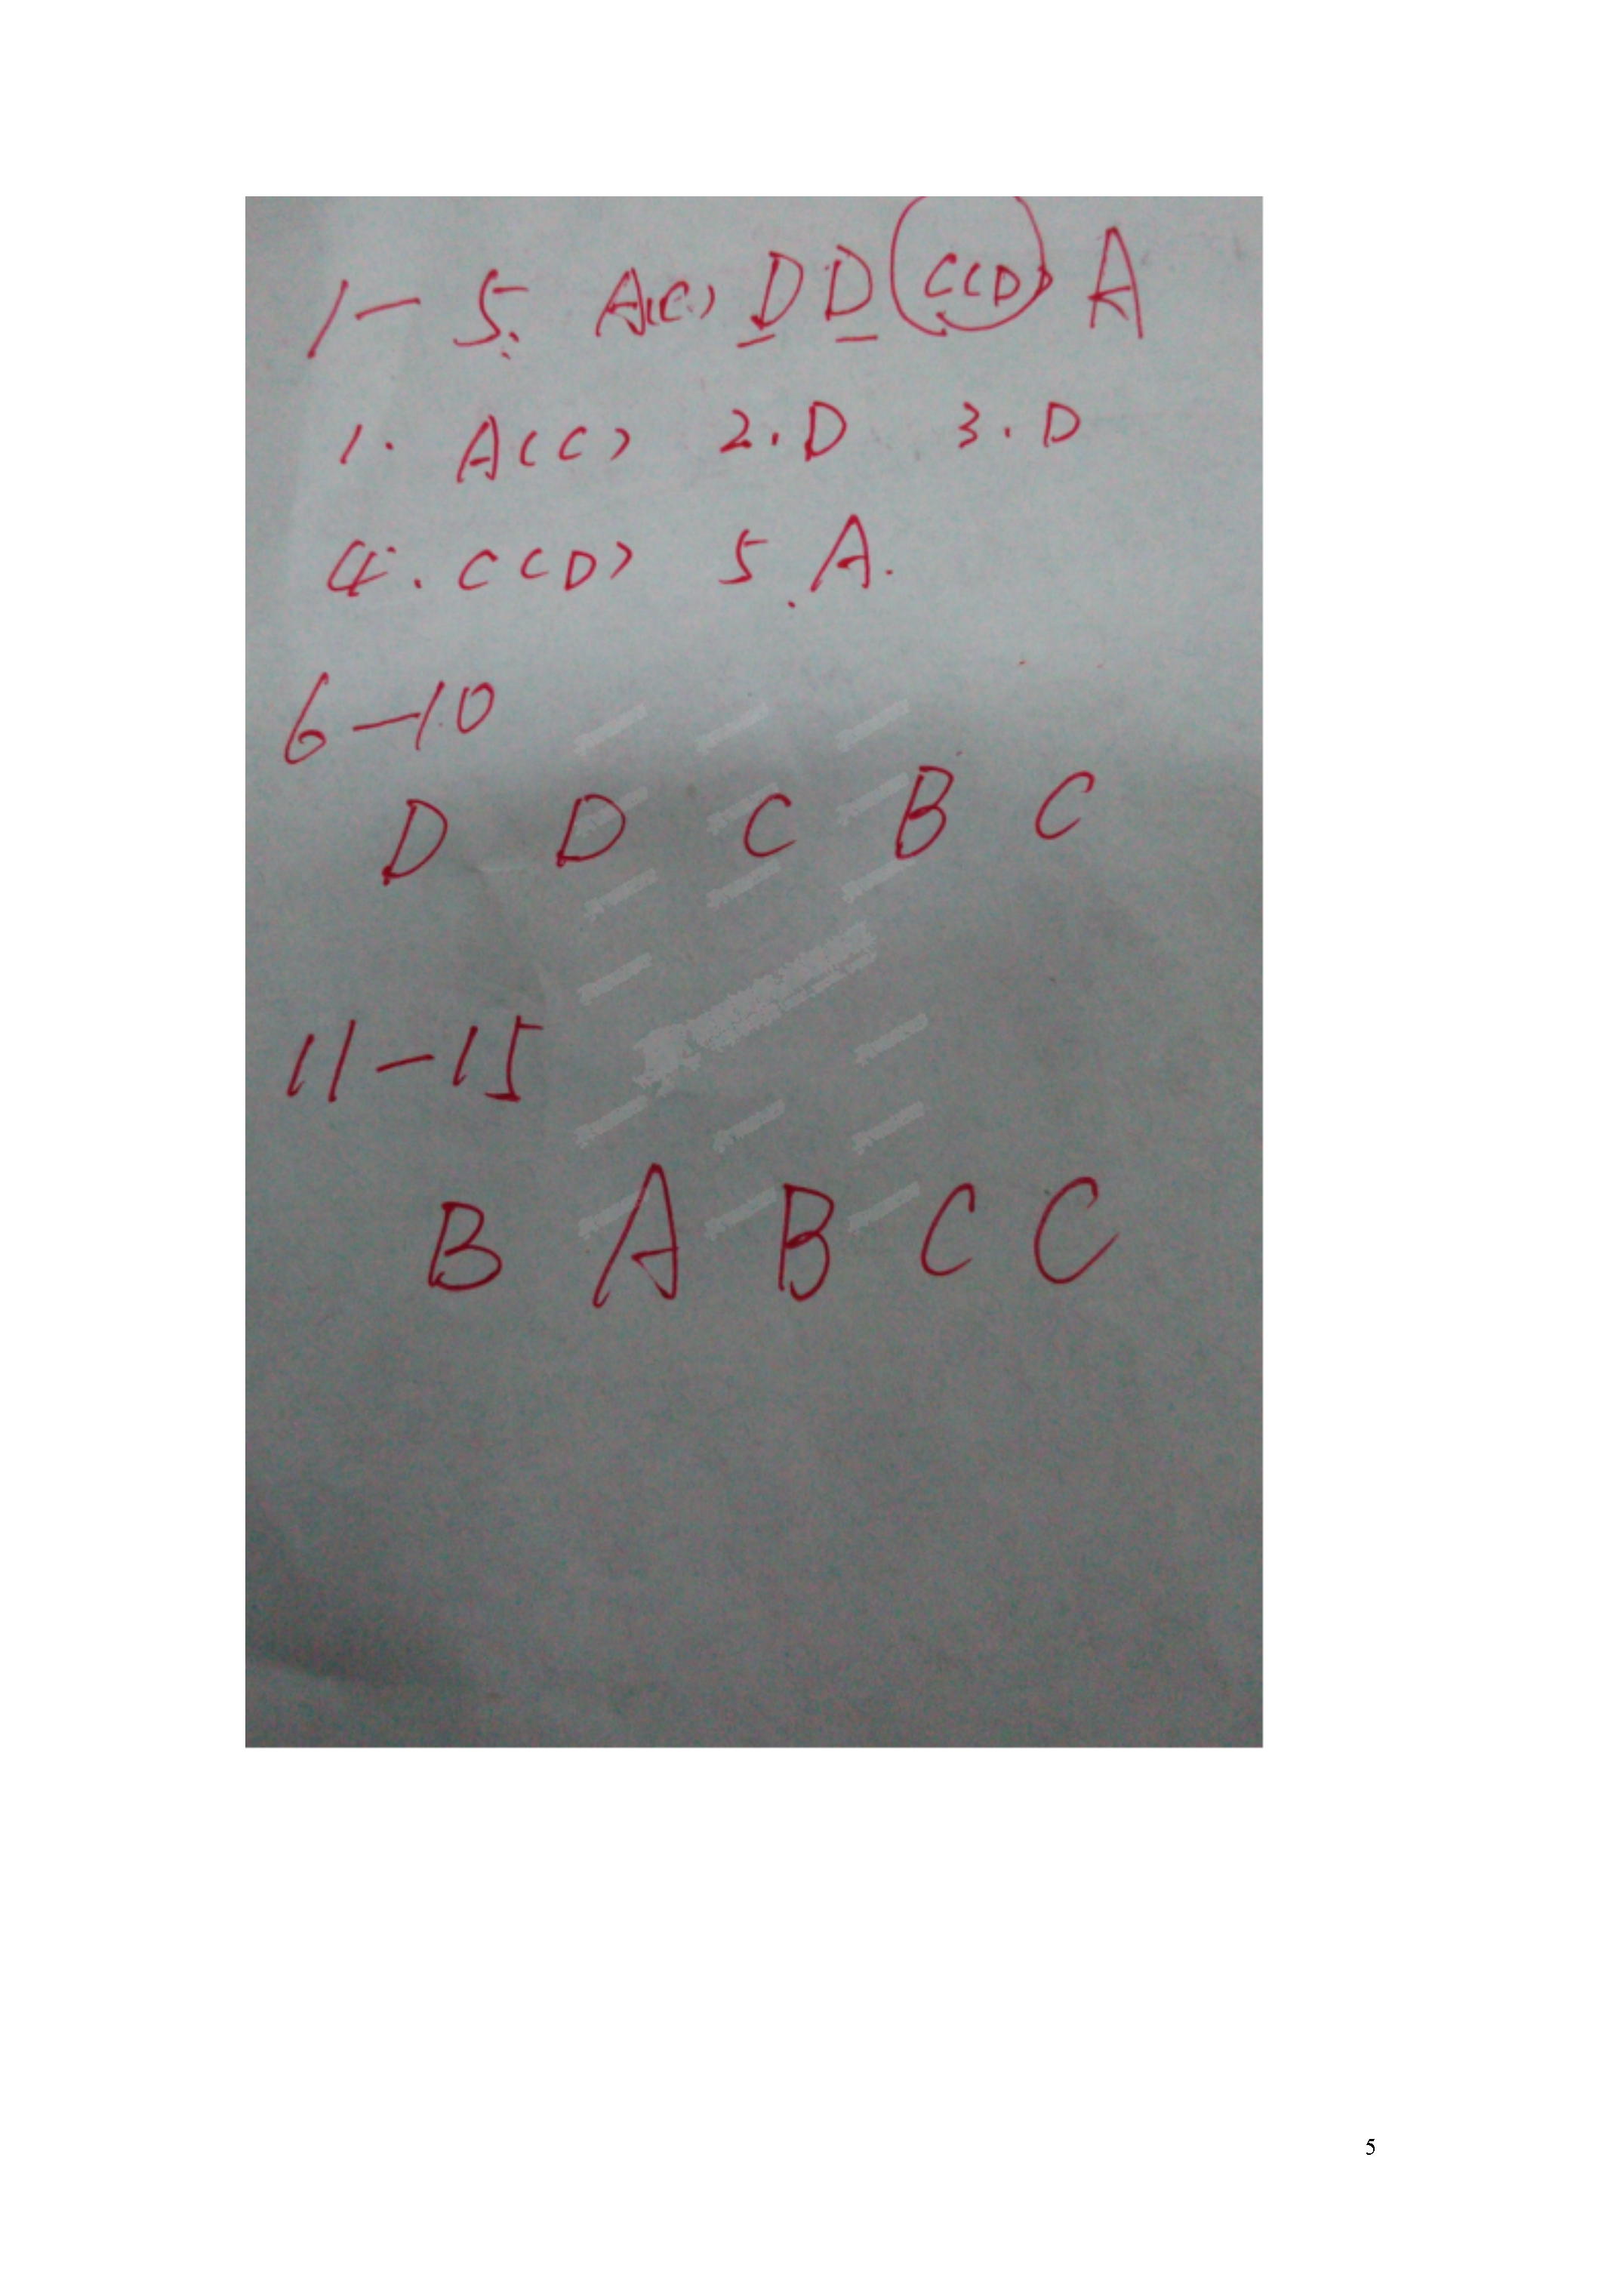 1-5. A(C) D D (C(D)) A
1. A(C) 2.D 3.D
4. C(D) 5.A.
6-10
D D C B C
11-15
B A B C C
5